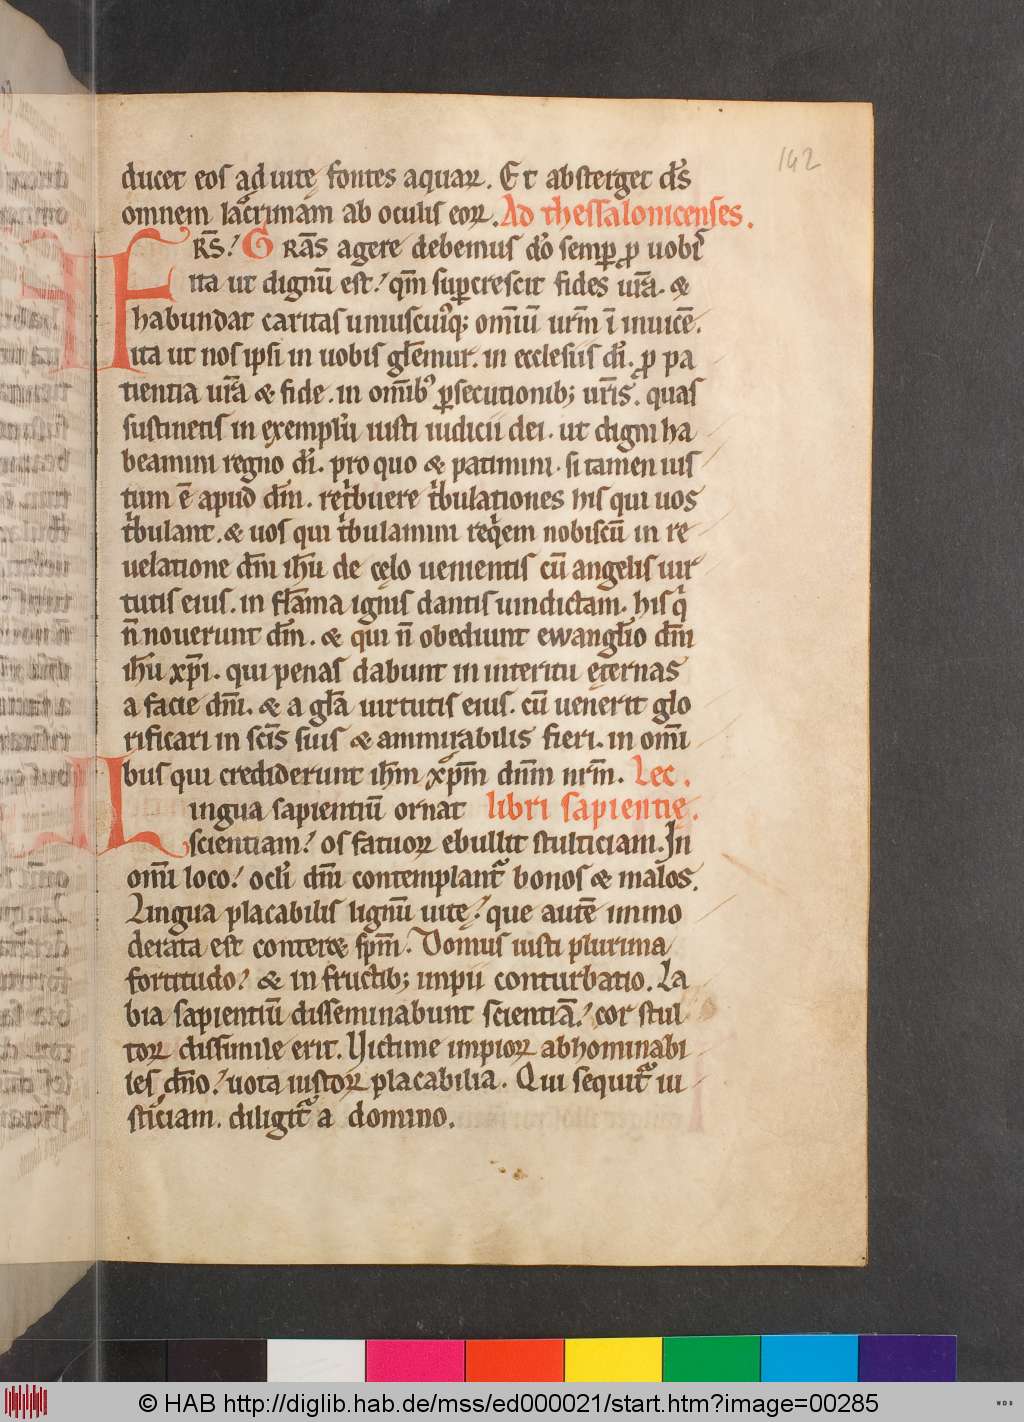 142
ducet eos ad uitę fontes aquaꝝ. Et absterget d̅s
omnem lacrimam ab oculis eoꝝ. Ad thessalonicenses.
FRS̅. GRA̅S agere debemus dо̅ semꝑ ꝓ uobis
ita ut dignū est. qm̅ suꝑcrescit fides ur̅a. &
habundat caritas uniuscuiꝰqꝫ omīū urm̅ ī inuicē.
ita ut nos ipsi in uobis gl̅emur. in ecclesiis di̅. ꝓ pa
tientia ur̅a & fide. in om̅ibꝰ ꝑsecutionibꝫ ur̅is. quas
sustinetis in exemplū iusti iudicii dei. ut digni ha
beamini regno di̅. pro quo & patimini. si tamen ius
tum ē apud dm̅. retͥbuere tͥbulationes his qui uos
tͥbulant. & uos qui tͥbulamini reqͥem nobiscū in re
uelatione dn̅i ih̅u de cęlo uenientis cū angelis uir
tutis eius. in fla̅ma ignis dantis uindictam. his qͥ
n̅ nouerunt dm̅. & qui n̅ obediunt ewangl̅io dn̅i
ih̅u xp̅i. qui penas dabunt in interitu ęternas
a facie dn̅i. & a gl̅a uirtutis eius. cū uenerit glo
rificari in sc̅is suis & ammirabilis fieri. in om̅i
bus qui crediderunt ih̅m xp̅m dn̅m nr̅m. Lec.
Lingua sapientiū ornat libri sapientię.
scientiam. os fatuoꝝ ebullit stulticiam. In
om̅i loco. ocl̅i dn̅i contemplant᷑ bonos & malos.
Lingua placabilis lignū uitę. que autē inmo
derata est conter& sp̅m. Domus iusti plurima
fortitudo. & in fructibꝫ impii conturbatio. La
bia sapientiū disseminabunt scientiā. cor stul
toꝝ dissimile erit. Uictime impioꝝ abhominabi
les dn̅o. uota iustoꝝ placabilia. Qui sequit᷑ iu
sticiam. diligit᷑ a domino.
© HAB http://diglib.hab.de/mss/ed000021/start.htm?image=00285